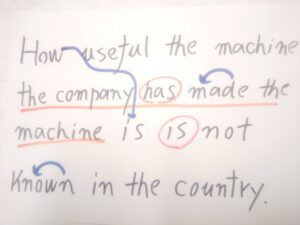 How useful the machine
the company has made the
machine is is not
known in the country.